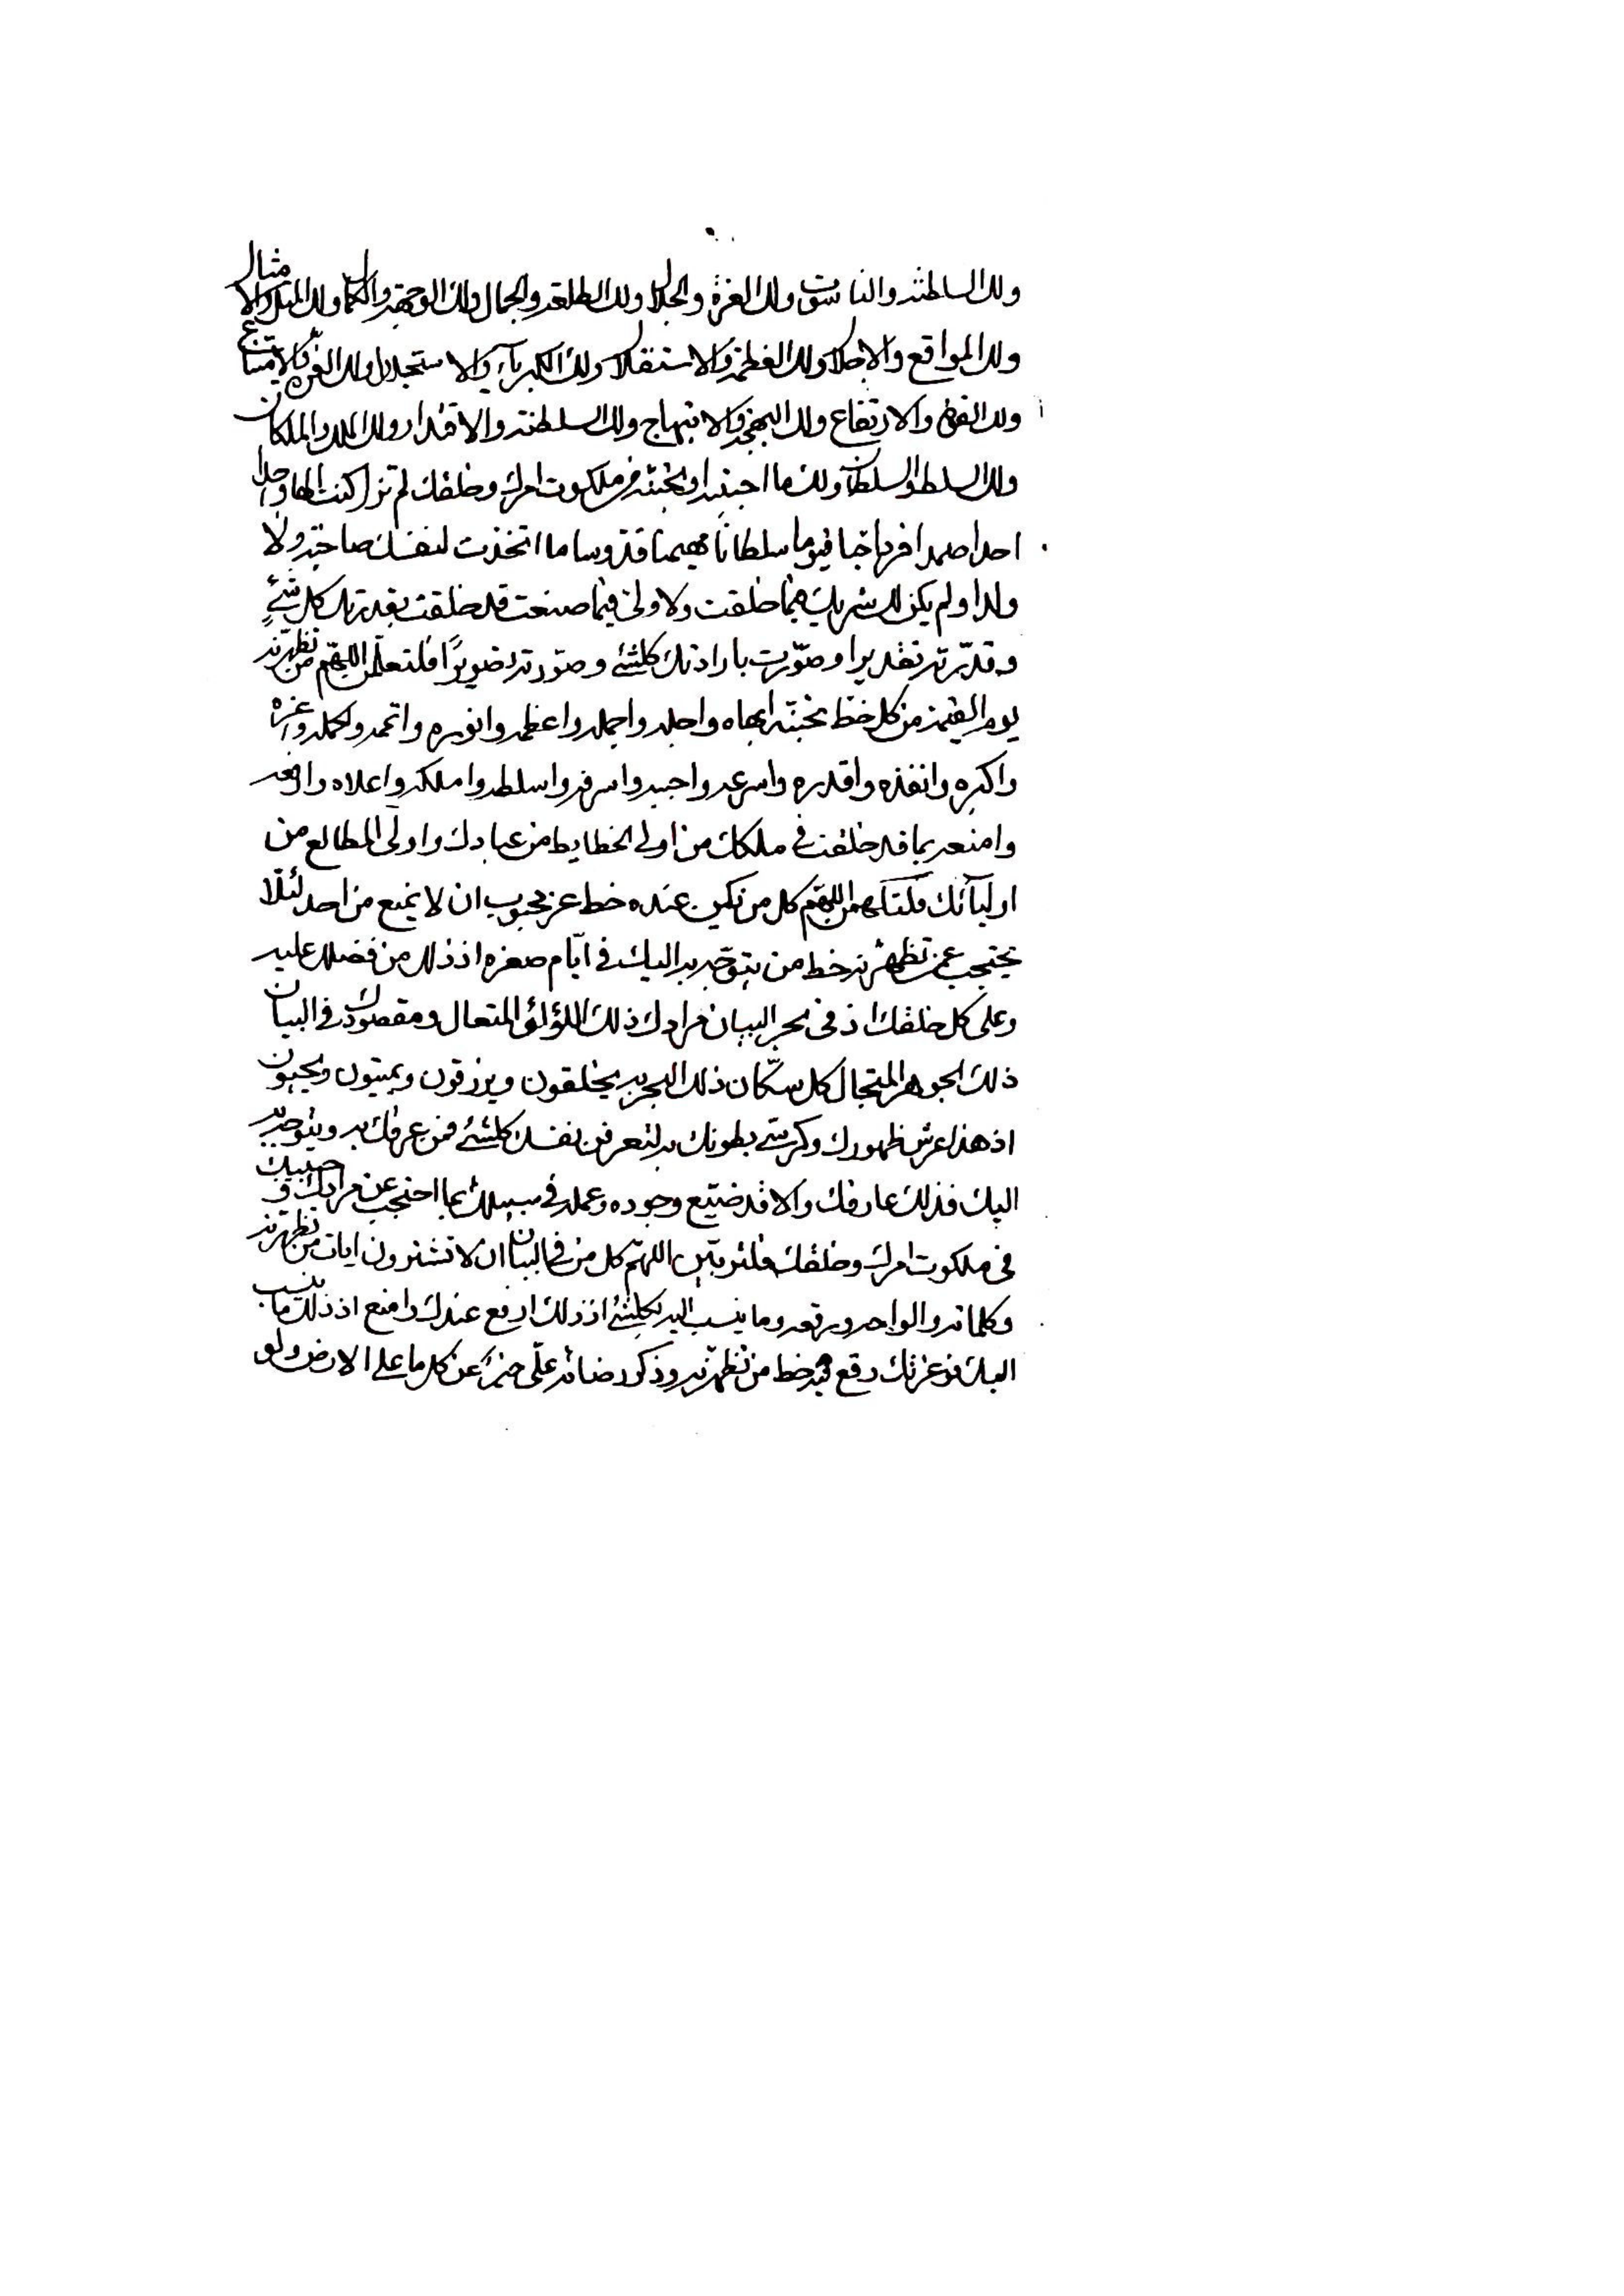 ولك السلطنه والناسوت ولك العزة والجلال ولك الطلعه والجمال ولك الوجهه والكمال ولك المثل والامثال
ولك المواقع والاجلال ولك العظمة والاستقلال ولك الكبرياء والاستجلال ولك العزة والامتناع
ولك القوة والارتفاع ولك البهجة والابتهاج ولك السلطنه والاقتدار ولك الملك والملكان
ولك السلط والسلطان ولك ما احببته او تحبنه من ملكوت امرك وخلقك لم تزل كنت الها واحدا
احدا صمدا فردا حيا قيوما سلطانا مهيمنا قدوسا ما اتخذت لنفسك صاحبة ولا
ولدا ولم يكن لك شريك فيما خلقت ولا ولي فيما صنعت قد خلقت بقدرتك كل شئ
وقدرته تقديرا وصورت بارادتك كلشئ وصورته تصويرا فلتعلمن اللهم من تظهرنه
يوم القيمة من كل خط تحبنه ابهاه واجله واجمله واعظمه وانوره واتمه واكمله واعزه
واكبره وانفذه واقدره واسرعه واحبه واشرفه واسلطه واملكه واعلاه وارفعه
وامنعه بما قد خلقت في ملكك من اولي الخطايط من عبادك واولي المطالع من
اوليائك فلتلهمن اللهم كل من يكن عنده خط عز محبوب ان لا يمنع من احد لئلا
يحتجب عمن تظهرنه خط من يتوجه به اليك في ايام صغره اذ ذلك من فضلك عليه
وعلى كل خلقك اذ في بحر البيان مرادك ذلك اللؤلؤ المتعال ومقصودك في البيان
ذلك الجوهر المتجال كل سكان ذلك البحر به يخلقون ويرزقون ويميتون ويحيون
اذ هذا عرش ظهورك وكرسي بطونك به لتعرفن نفسك كلشئ فمن عرفك به ويتوجه به
اليك فذلك عارفك والا قد ضيع وجوده وعمله في سبيلك بما احتجب عن مرادك و حبيبك
في ملكوت امرك وخلقك فلتربين اللهم كل من في البيان ان لا تشترون ايات من تظهرنه
وكلماته والواحه ورقعه وما ينسب اليه بكلشئ اذ ذلك ارفع عندك وامنع اذ ذلك ما ينسب
اليك فوعزتك رقع فيه خط من تظهرنه وذكر رضائه علي خير عن كل ما على الارض ولو